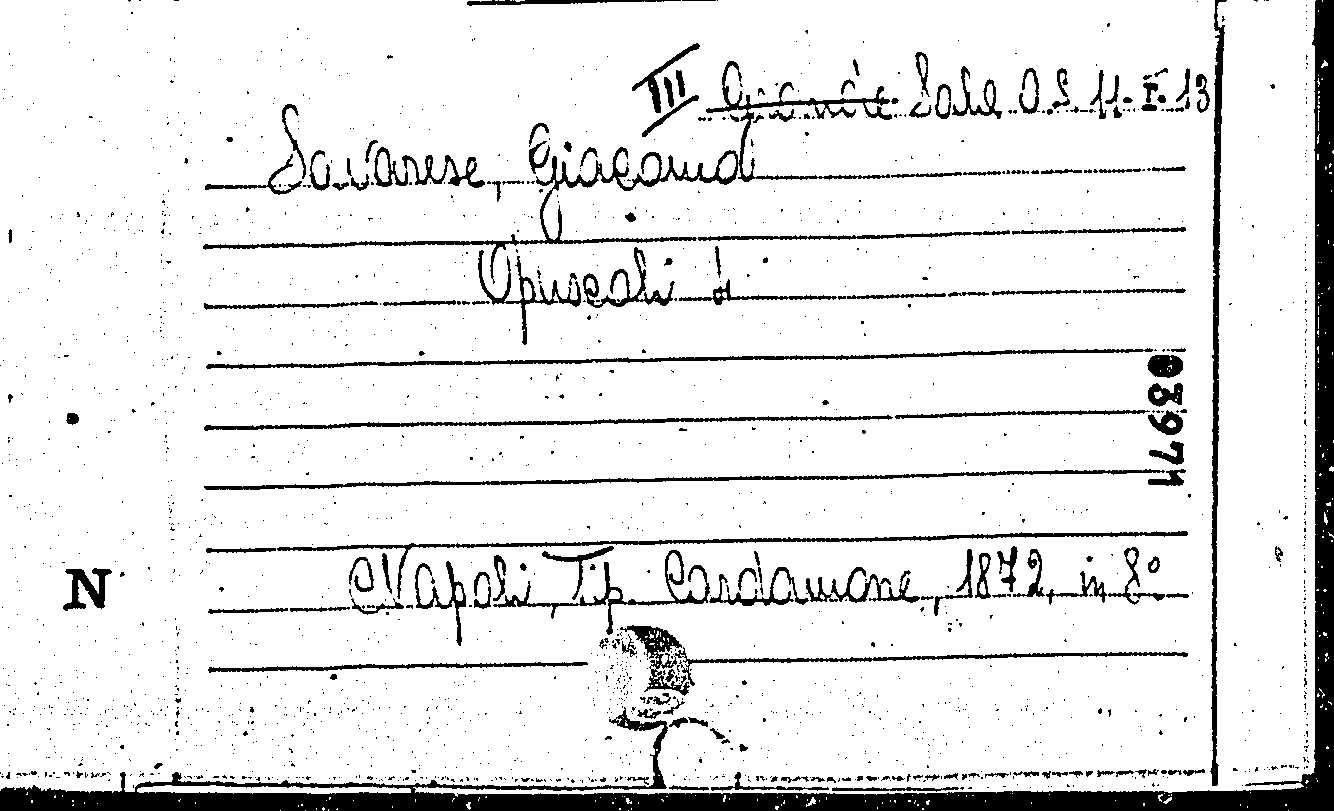 III Sala O.S. 11. F. 13
Savarese, Giacomo
Opuscoli di
03971
Napoli, Tip. Cardamone, 1872, in 8°
N